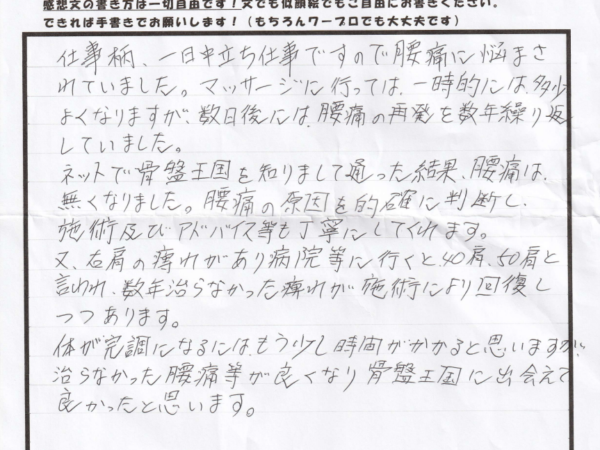 感想文の書き方は一切自由です！文でも似顔絵でもご自由にお書きください。
できれば手書きでお願いします！（もちろんワープロでも大丈夫です）
仕事柄、一日中立ち仕事ですので腰痛に悩まさ
れていました。マッサージに行っては、一時的には、多少
よくなりますが、数日後には、腰痛の再発を数年繰り返
していました。
ネットで骨盤王国を知りまして通った結果、腰痛は、
無くなりました。腰痛の原因を的確に判断し、
施術及びアドバイス等も丁寧にしてくれます。
又、右肩の痺れがあり病院等に行くと、40肩、50肩と
言われ、数年治らなかった痺れが施術により回復し
つつあります。
体が完調になるには、もう少し時間がかかると思いますが、
治らなかった腰痛等が良くなり骨盤王国に出会えて
良かったと思います。